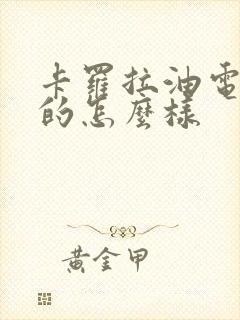 卡羅拉油電
的怎麼樣
黃金甲